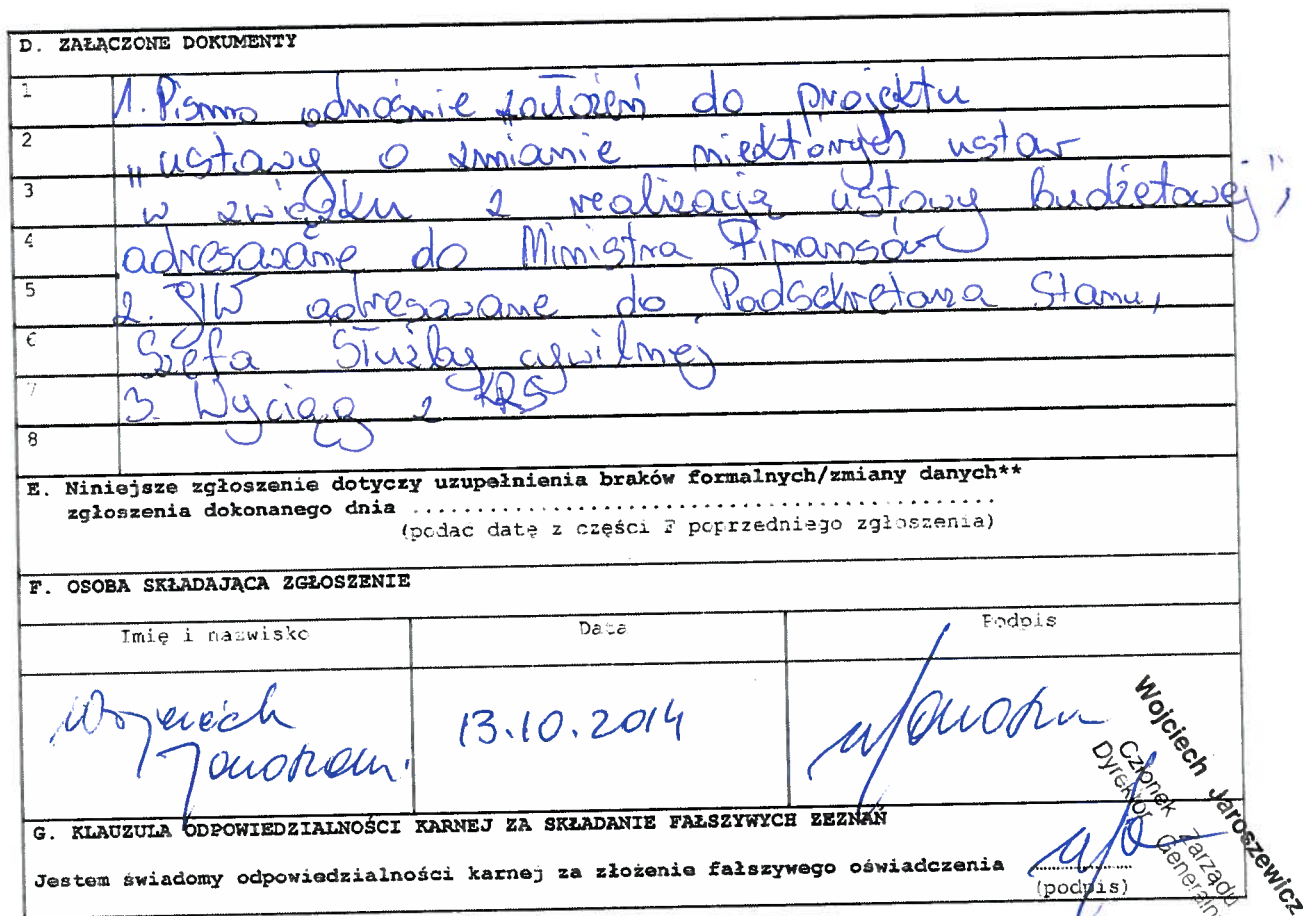 D. ZAŁĄCZONE DOKUMENTY
1 1. Pismo odnośnie założeń do projektu
2 „ustawy o zmianie niektórych ustaw
3 w związku z realizacją ustawy budżetowej",
4 adresowane do Ministra Finansów
5 2. adresowane do Podsekretarza Stanu,
6 Szefa Służby cywilnej
7 3. Wyciąg z KRS
8
E. Niniejsze zgłoszenie dotyczy uzupełnienia braków formalnych/zmiany danych**
zgłoszenia dokonanego dnia ..............................................
(podać datę z części F poprzedniego zgłoszenia)
F. OSOBA SKŁADAJĄCA ZGŁOSZENIE
Imię i nazwisko Data Podpis
Wojciech 13.10.2014
Wojciech Jaroszewicz
Członek Zarządu
Dyrektor Generaln
G. KLAUZULA ODPOWIEDZIALNOŚCI KARNEJ ZA SKŁADANIE FAŁSZYWYCH ZEZNAŃ
Jestem świadomy odpowiedzialności karnej za złożenie fałszywego oświadczenia
(podpis)